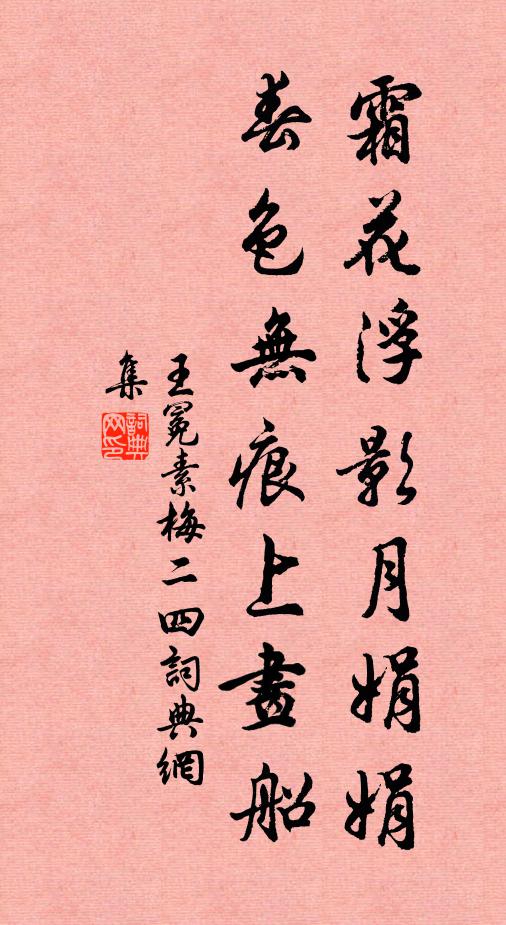 霜花浮影月娟娟
春色無痕上畫船
王冕素梅二四詞典網
集
詞典
网印